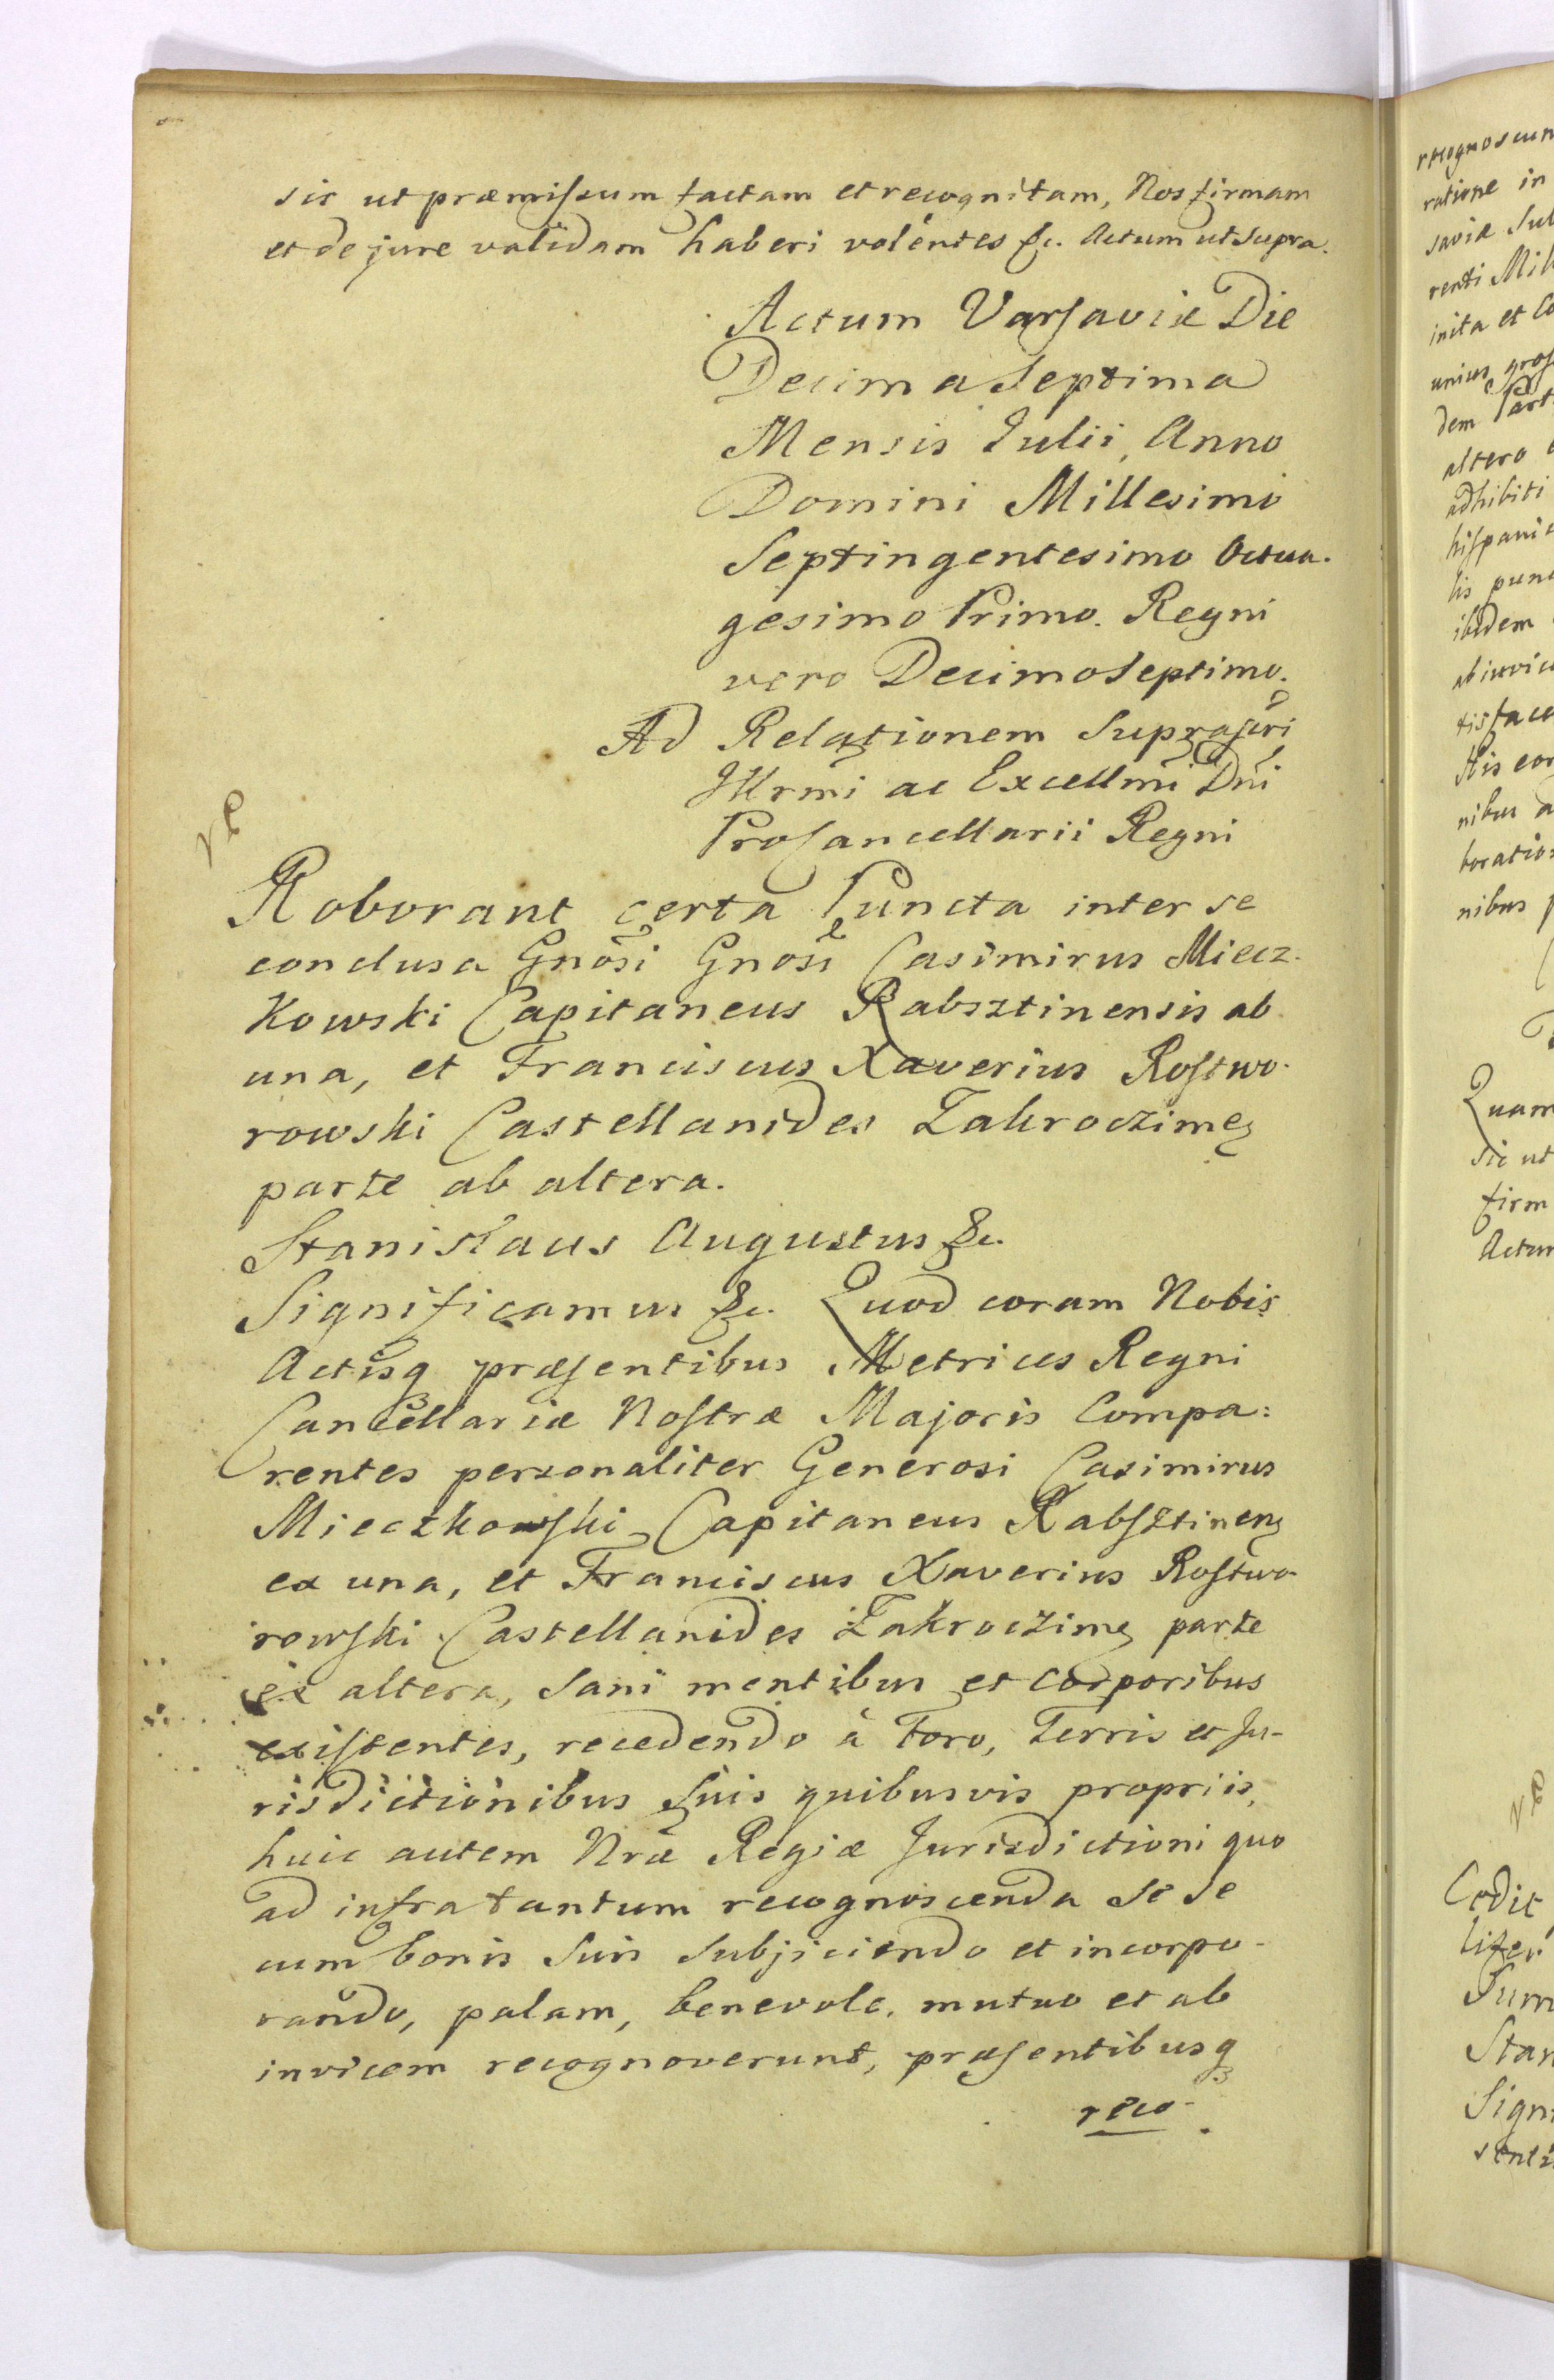 sic ut præmiſsum factam et recognitam, Nos firmam
et de jure validam haberi volentes &c. Actum ut supra.
Actum Varſaviæ Die
Decima Septima
Mensis Iulii, Anno
Domini Millesimo
Septingentesimo Octua-
gesimo Primo. Regni
vero Decimo Septimo.
Ad Relationem Supraſcri
Illrmi ac Excellmi Dni
Procancellarii Regni
Roborant certa Puncta inter se
conclusa Gnosi Gnosi Casimirus Miecz-
kowski Capitaneus Rabsztinensis ab
una, et Franciscus Xaverius Roſtwo-
rowski Castellanides Zakroczimeⁿ
parte ab altera.
Stanislaus Augustus &c.
Significamus &c. Quod coram Nobis
Actisq præſentibus Metrices Regni
Cancellariæ Noſtræ Majoris Compa:
rentes personaliter Generosi Casimirus
Mieczkowſki Capitaneus Rabſztinen
ex una, et Franciscus Xaverius Roſtwo
rowſki Castellanides Zakroczime parte
ex altera, Sani mentibus et corporibus
exiſtentes, recedendo à Foro, Terris et Ju-
risdictionibus Suis quibusvis propriis,
huic autem Nræ Regiæ Jurisdictioni quo
ad infra tantum recognoscenda Se Se
cum bonis Suis Subjiciendo et incorpo-
rando, palam, benevole, mutuo et ab
invicem recognoverunt, præſentibusq
reco-
recognoscun
ratione in
saviæ Sub
renti Mil
inita et Co
unius groſ
dem Part
altero
adhibiti
hiſpani
lis pun
ibidem
ab invic
tisfac
nibus a
boration
nibus p
Quam
Sic ut
firm
Actu
Cedit
Sum
Stan
Sign